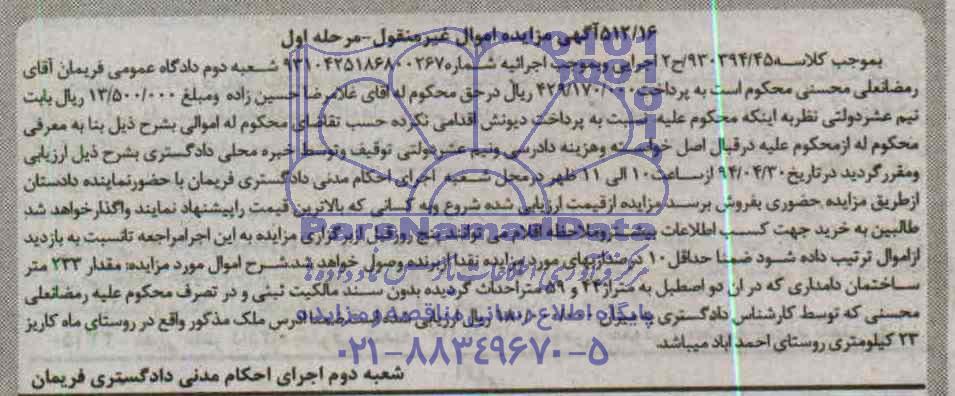 ۵۱۲/۱۶آگهی مزایده اموال غیرمنقول-مرحله اول
بموجب کلاسه۹۳۰۳۹۴/۴۵/ج۲ اجرایی وبموجب اجرائیه شماره۹۳۱۰۴۲۵۱۸۶۸۰۰۲۶۷ شعبه دوم دادگاه عمومی فریمان آقای
رمضانعلی محسنی محکوم است به پرداخت۴۲۹/۱۷۰/۰۰۰ ریال درحق محکوم له آقای غلامرضا حسین زاده ومبلغ ۱۳/۵۰۰/۰۰۰ ریال بابت
نیم عشردولتی نظربه اینکه محکوم علیه نسبت به پرداخت دیونش اقدامی نکرده حسب تقاضای محکوم له اموالی بشرح ذیل بنا به معرفی
محکوم له ازمحکوم علیه درقبال اصل خواسته وهزینه دادرسی ونیم عشردولتی توقیف وتوسط خبره محلی دادگستری بشرح ذیل ارزیابی
ومقررگردید درتاریخ۹۴/۰۴/۳۰ ازساعت۱۰ الی ۱۱ ظهر درمحل شعبه اجرای احکام مدنی دادگستری فریمان با حضورنماینده دادستان
ازطریق مزایده حضوری بفروش برسد.مزایده ازقیمت ارزیابی شده شروع وبه کسانی که بالاترین قیمت راپیشنهاد نمایند واگذارخواهد شد
طالبین به خرید جهت کسب اطلاعات بیشتروملاحظه اقلام می توانند پنج روزقبل ازبرگزاری مزایده به این اجرامراجعه تانسبت به بازدید
ازاموال ترتیب داده شود ضمنا حداقل۱۰ درصدبهای موردمزایده نقدا ازبرنده وصول خواهد شد.شرح اموال مورد مزایده: مقدار ۲۳۳ متر
ساختمان دامداری که در ان دو اصطبل به متراژ۲۴ و ۵۹ متراحداث گردیده بدون سند مالکیت ثبتی و در تصرف محکوم علیه رمضانعلی
محسنی که توسط کارشناس دادگستری به میزان ریال ارزیابی شده است.ضمنا ادرس ملک مذکور واقع در روستای ماه کاریز
۲۳ کیلومتری روستای احمد آباد میباشد.
شعبه دوم اجرای احکام مدنی دادگستری فریمان
ParsNamadData
پایگاه اطلاع رسانی مناقصه و مزایده
۰۲۱-۸۸۳۴۹۶۷۰-۵